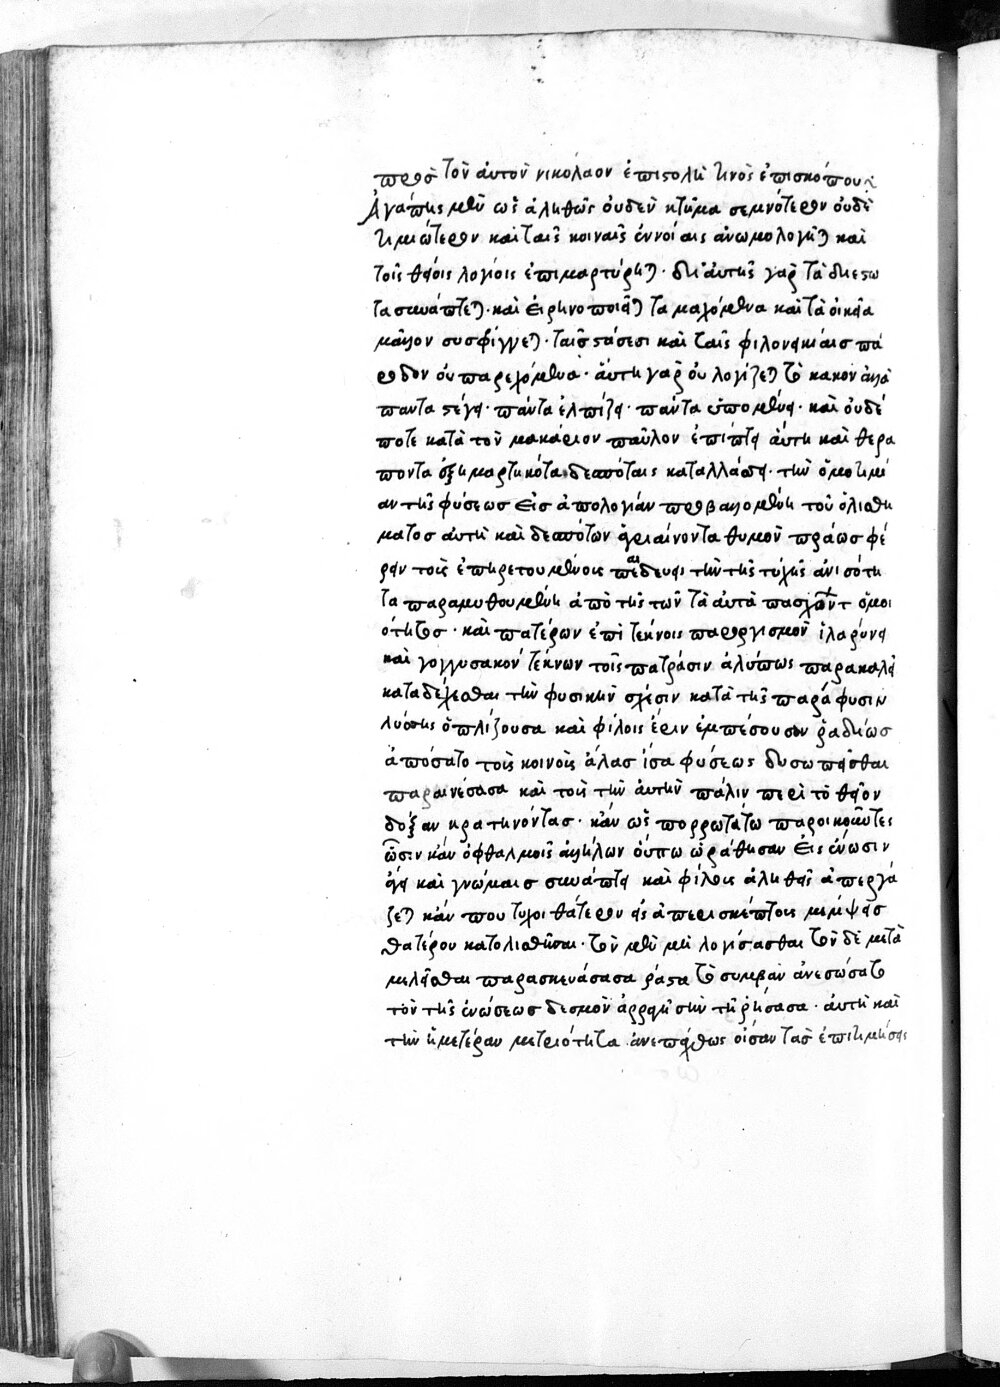 πρὸς τὸν αὐτὸν νικόλαον ἐπιστολὴ τινὸς ἐπισκόπου
Ἀγάπης μὲν ὡς ἀληθῶς οὐδὲν κτῆμα σεμνότερον οὐδὲ
τιμιώτερον καὶ ταῖς κοιναῖς ἐννοίαις ἀνωμολογῆται καὶ
τοῖς θείοις λογίοις ἐπιμαρτύρηται · δι' αὐτῆς γὰρ τὰ διεστῶ
τα συνάπτεται · καὶ εἰρηνοποιεῖται τὰ μαχόμενα καὶ τὰ οἰκεῖα
μᾶλλον συσφίγγεται · ταῖς στάσεσι καὶ ταῖς φιλονεικίαις πά
ροδον οὐ παρεχόμενα · αὐτὴ γὰρ οὐ λογίζεται τὸ κακὸν ἀλλὰ
πάντα στέγει · πάντα ἐλπίζει · πάντα ὑπομένει · καὶ οὐδέ
ποτε κατὰ τὸν μακάριον παῦλον ἐπίπτει αὐτὴ καὶ θερά
ποντα ἐξημαρτηκότα δεσπόταις καταλλάττει · τὴν ὁμοτιμί
αν τῆς φύσεως εἰς ἀπολογίαν προβαλλομένη τοῦ ὀλισθή
ματος αὐτὴ καὶ δεσποτῶν ἀγριαίνοντα θυμὸν πράως φέ
ρειν τοῖς ἐπηρετουμένοις παιδεύει τὴν τῆς τύχης ἀνισότη
τα παραμυθουμένη ἀπὸ τῆς τῶν τὰ αὐτὰ πασχόντ ὁμοι
ότητος · καὶ πατέρων ἐπὶ τέκνοις παροργισμὸν ἱλαρύνει
καὶ γογγυσακὸν τέκνων τοῖς πατράσιν ἀλύπως παρακαλεῖ
καταδέχεσθαι τὴν φυσικὴν σχέσιν κατὰ τῆς παρὰ φύσιν
λύσσης ὁπλίζουσα καὶ φίλοις ἔριν ἐμπέσουσαν ῥαδίως
ἀπόσατο τοῖς κοινοῖς ἅλας ἴσα φύσεως δυσωπεῖσθαι
παραινέσασα καὶ τοῖς τὴν αὐτὴν πάλιν περὶ τὸ θεῖον
δόξαν κρατήνοντας · κἂν ὡς πορρωτάτω παροικοῦντες
ὦσιν κἂν ὀφθαλμοῖς ἀλλήλων οὔπω ὡράθησαν εἰς ἕνωσιν
ἄγει καὶ γνώμαις συνάπτει καὶ φίλους ἀληθεῖς ἀπεργά
ζεται κἂν που τύχοι θάτερον εἰς ἀπερισκέπτοις μέμψεις
θατέρου κατολισθῆσαι · τὸν μὲν μὴ λογίσασθαι τὸν δὲ μετα
μελεῖσθαι παρασκευάσασα ῥᾷστα τὸ συμβὰν ἀνεσώσατο
τὸν τῆς ἑνώσεως δεσμὸν ἀρραγῆ συντηρήσασα · αὐτὴ καὶ
τὴν ἡμετέραν μετριότητα ἀνεπαχθῶς οἴσαν τὰς ἐπιτιμήσεις